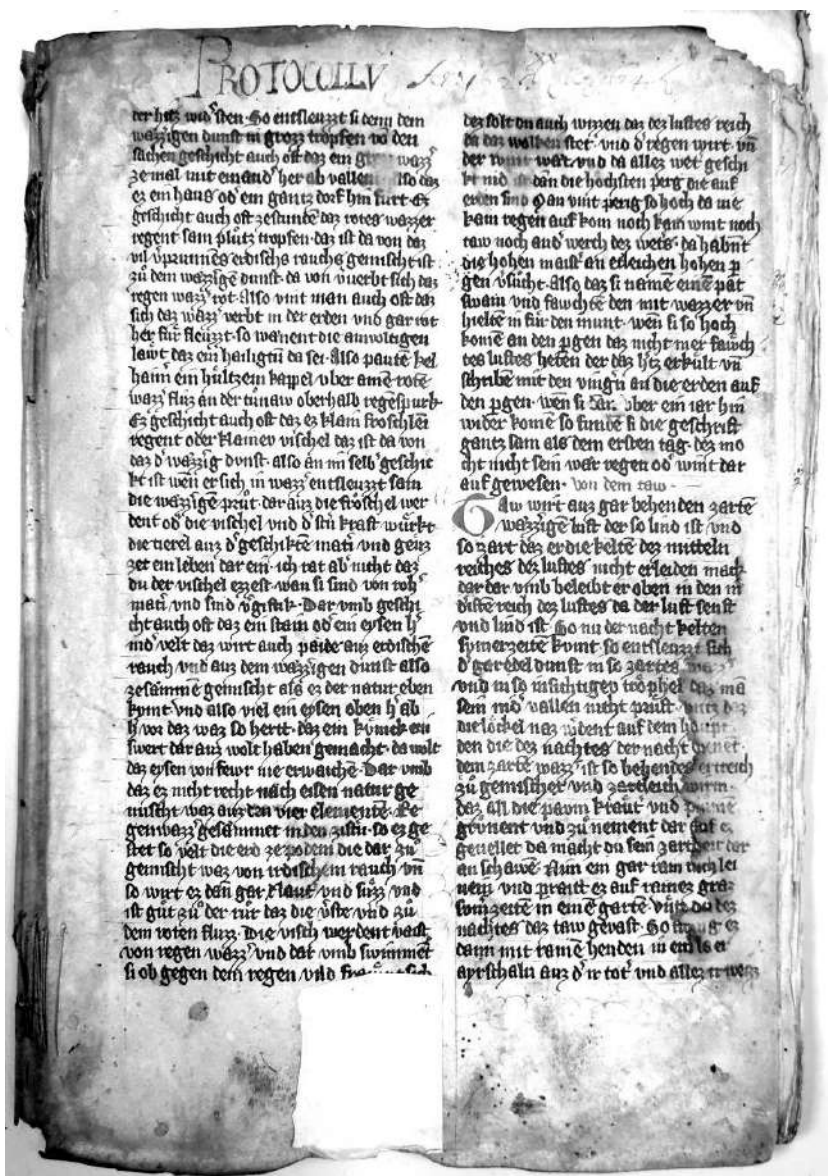 PROTOCOLLV
der hitz wid'sten. So entsleuzzt si denn dem
wazzigen dunst in grozz tropfen von den
sachen geschicht auch oft daz ein wazz'
ze mal mit einand' her ab vallent also daz
ez ein haus od' ein gantz dorf hin fürt. Ez
geschicht auch oft zestunden daz rotes wazzer
regent sam plutz tropfen. daz ist da von daz
vil v'prunnēs erdischs rauchs gemischt ist
zů dem wazzigē dunst. da von v'uerbt sich daz
regen wazz' rot. Also vint man auch oft daz
sich daz wazz' verbt in der erden vnd gar rot
her für fleuzzt. so wanent die ainveltigen
lawt daz ein hailigtū da sei. Also pautē kel
haim ein hültzein kappel vber ainē rotē
wazz' fluz an der tůnaw oberhalb regēspurk
Ez geschicht auch oft daz ez klain fröschlei
regent oder klainev vischel daz ist da von
daz d' wazzig dvnst. also an im selb' geschic
kt ist wen er sich in wazz' entsleuzzt sam
die wazzigē průt. dar auz die fröschel wer
dent od' die vischel vnd d' stn̄ kraft würkt
die tierel auz d' geschiktē mati' vnd geuz
zet ein leben dar ein. ich rat ab' nicht daz
du der vischel ezzest. wan si sind von roh'
mati' vnd sind v'giftik. Dar vmb geschi
cht auch oft daz ein stain od' ein eysen h'
nid' velt daz wirt auch paide auz erdischē
rauch vnd auz dem wazzigen dunst also
zesāmmē gemischt als ez der natur eben
kvmt. vnd also viel ein eysen oben h' ab
h' vor daz waz so hertt. daz ein kvnick ein
swert dar auz wolt haben gemacht. da wolt
daz eysen von fewr nie erwaichē. Dar vmb
daz ez nicht recht nach eisen natur ge
mischt waz auz den vier elementē. Re
gen wazz' gesammet in den zistn̄. so ez ge
stet so velt die erd ze podem die dar zů
gemischt waz von irdischem rauch vn̄
so wirt ez dan̄ gar klaur vnd sůzz vnd
ist gůt zů der rür daz die v'ste vnd zů
dem roten fluzz. Die visch werdent vaist
von regen wazz' vnd dar vmb swimmēt
si ob gegen dem regen vnd
dez solt du auch wizzen daz dez luftes reich
da daz wolken stet. vnd d' regen wirt. vn̄
der wint wät. vnd da allez wet' geschi
kt nid' ist dan die höchsten perg die auf
erden sind. Man vint perig so hoch da nie
kain regen auf kom noch kain wint noch
taw noch and' werch dez wet's. da habn̄t
die hohen maist' an etleichen hohen p
gen v'sůcht. Also daz si namen einē pat
swam vnd fawchtē den mit wazzer vn̄
hieltē in für den munt. wen si so hoch
komē an den p'gen daz nicht mer fawch
tes luftes heten der daz h'tz erkült vn̄
schribē mit den ving'n an die erden auf
den p'gen. wen si dar. vber ein iar hin
wider komē so fundē si die geschrift
gantz sam als dem ersten tag. dez mo
cht nicht sein wär regen od' wint dar
auf gewesen. von dem taw.
Taw wirt auz gar behenden zartē
wazzigē luft der so lind ist vnd
so zart daz er die keltē dez mitteln
reiches dez luftes nicht erleiden mack
dar vmb beleibt er oben in den in
d'istē reich dez luftes da der luft senft
vnd lind ist. So nu der nacht kelten
svmerzeitē kvmt so entsleuzzt sich
d' gar edel dunst in so zartes
vnd in so insichtigev tröphel daz mā
sein nid' vallen nicht prüft. daz
die löckel naz w'dent auf dem haupt
den die dez nachtes der nacht
dem zartē wazz' ist so behendes ertreich
zů gemischet vnd zärtleich
daz all die pavm kraut vnd
grůnent vnd zů nement dar auf ez
geuellet da macht du sein zartheit dar
an schawē. Nim ein gar rain tüchlei
nein vnd prait ez auf rainez graz
svm'zeitē in einē gartē vntz du dez
nachtes daz taw gevast. So ez
dann mit rainē henden in ein
ayrschaln auz d' ir tot' vnd allez ir weizz